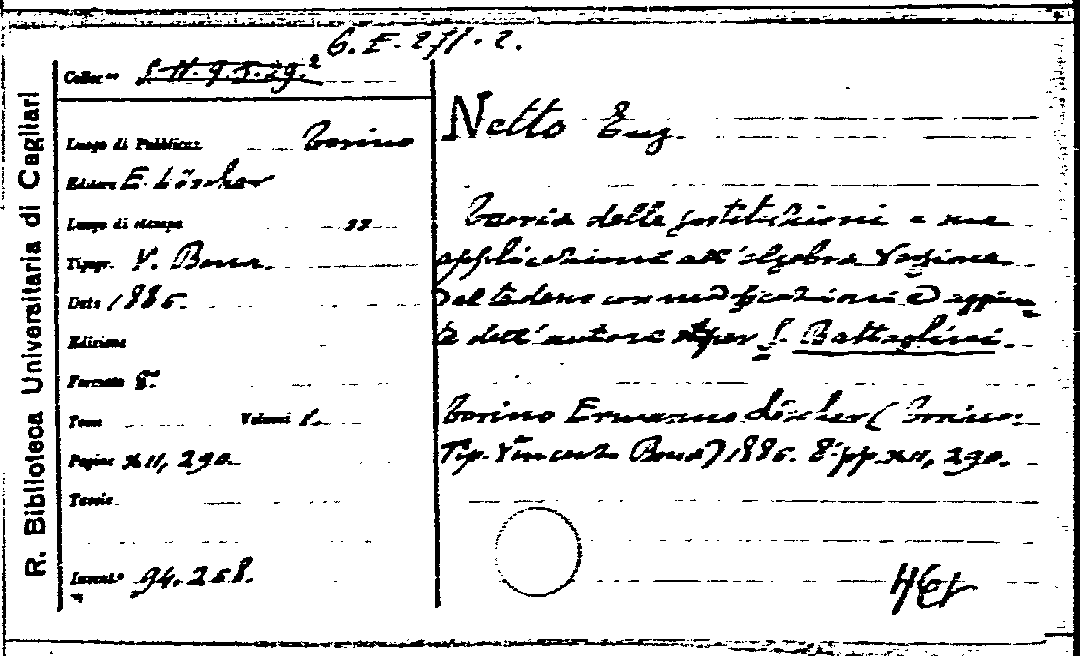 G. E. 271. 2.
R. Biblioteca Universitaria di Cagliari
Colloc.ne S. N. 9. 5. 29.²
Luogo di Pubblicaz. Torino
Editore E. Löscher
Luogo di stampa "
Tipogr. V. Bona.
Data 1885.
Edizione
Formato 8°
Tomo Volumi 1.
Pagine XII, 290.
Tavole
Invent.° 94.268.
Netto Eug.
Teoria delle sostituzioni e sue
applicazioni all'algebra Versione
dal tedesco con modificazioni ed aggiun
te dell'autore per G. Battaglini.
Torino Ermanno Löscher (Torino:
Tip. Vincenzo Bona) 1885. 8° pp. XII, 290.